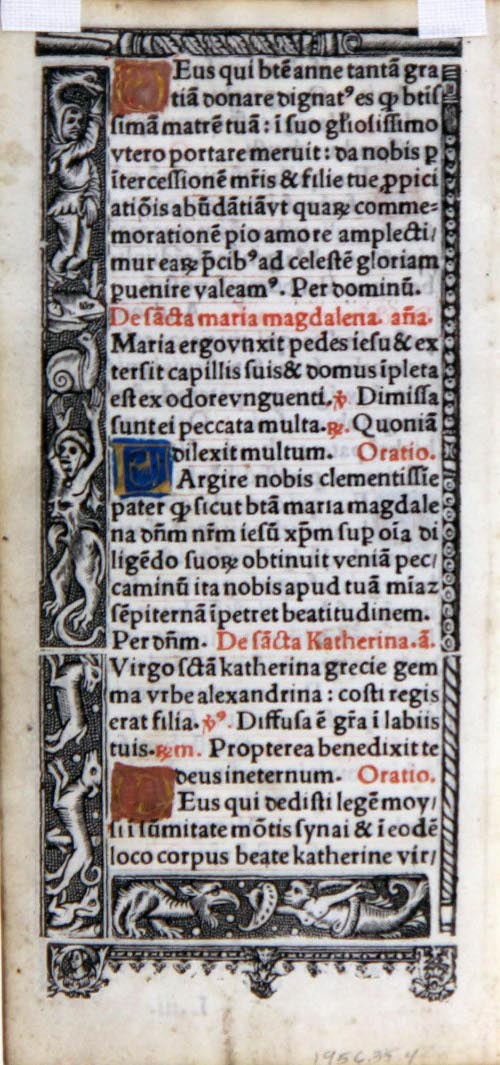 Deus qui btē anne tantā gra
tiā donare dignatꝰ es ꝙ btis
simā matrē tuā : ī suo gl̄iosissimo
vtero portare meruit : da nobis ꝑ
ītercessionē mr̄is & filie tue ꝓpici
atiōis abūdātiā vt quaꝝ comme=
morationē pio amore amplecti/
mur eaꝝ p̄cibꝰ ad celestē gloriam
peruenire valeamꝰ. Per dominū.
De sācta maria magdalena. aña.
Maria ergo vnxit pedes iesu & ex
tersit capillis suis & domus īpleta
est ex odore vnguenti. ℣ Dimissa
sunt ei peccata multa. ℞. Quoniā
dilexit multum. Oratio.
LArgire nobis clementissie
pater ꝙ sicut btā maria magdale
na dñm nr̄m iesū xp̄m sup oīa di
ligēdo suoꝝ obtinuit veniā pec/
caminū ita nobis apud tuā mīaz
sēpiternā īpetret beatitudinem.
Per dñm. De sācta Katherina. ā.
Virgo sctā katherina grecie gem
ma vrbe alexandrina : costi regis
erat filia. ℣ꝰ. Diffusa ē gr̄a ī labiis
tuis. ℞m. Propterea benedixit te
deus in eternum. Oratio.
DEus qui dedisti legē moy/
si ī sūmitate mōtis synai & ī eodē
loco corpus beate katherine vir/
1956.35.4